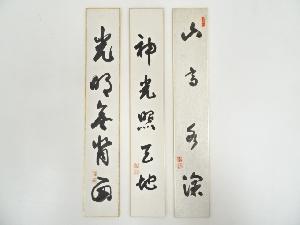 山高水深
神光照天地
光明無背面